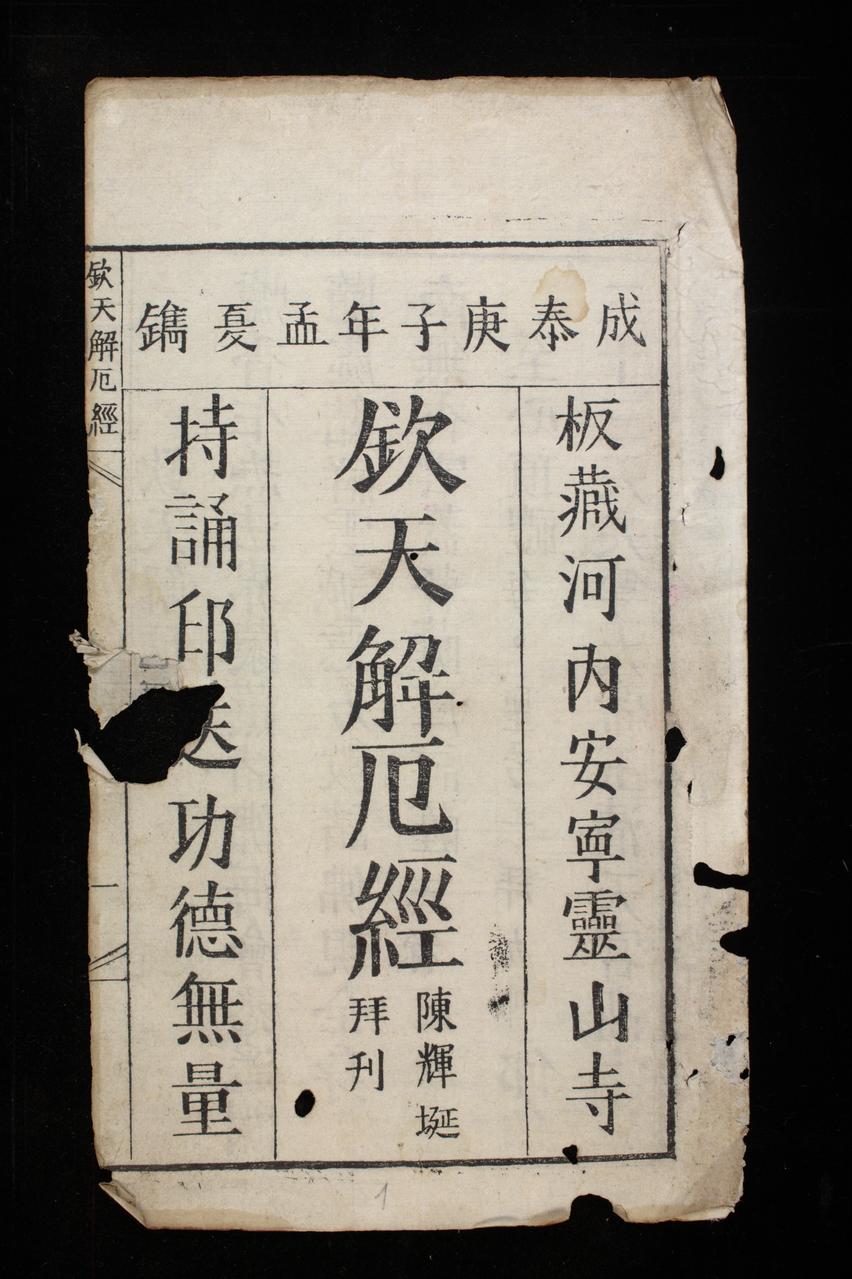 成泰庚子年孟夏鐫
板藏河内安寧靈山寺
欽天解厄經
陳輝埏
拜刊
持誦印送功德無量
欽天解厄經
一
1